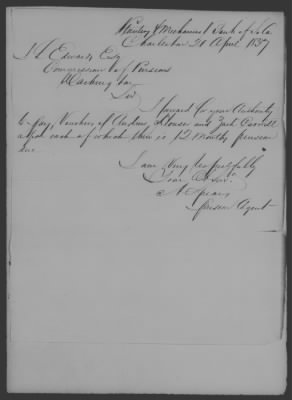 Planters & Mechanics Bank of So Ca
Charleston 21 April 1837
J L Edwards Esq
Commissioner of Pensions
Washington
Sir
I forward for your Authority
to pay, Vouchers of Andrew and Zach
and each of which there is 12 Months pension
due
I am Very respectfully
Your
Pension Agent